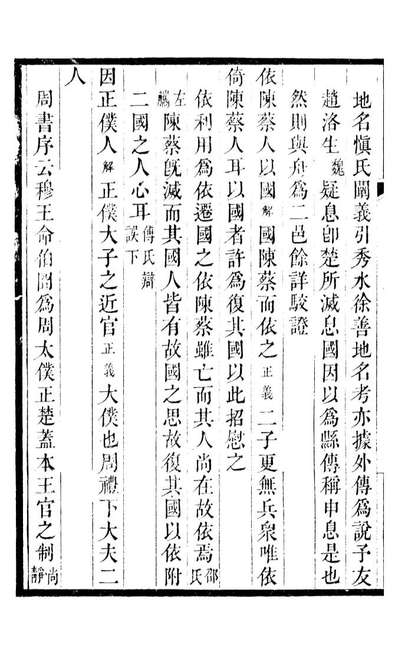 地名慎氏闕義引秀水徐善地名考亦據外傳爲說予友
趙洛生魏疑息卽楚所滅息國因以爲縣傳稱申息是也
然則與舟爲二邑餘詳駁證
依陳蔡人以國解國陳蔡而依之正義二子更無兵衆唯依
倚陳蔡人耳以國者許爲復其國以此招慰之
依利用爲依遷國之依陳蔡雖亡而其人尚在故依焉邵氏
左觿陳蔡旣滅而其國人皆有故國之思故復其國以依附
二國之人心耳傅氏辯誤下
因正僕人解正僕大子之近官正義大僕也周禮下大夫二
人
周書序云穆王命伯冏爲周太僕正楚蓋本王官之制尚靜